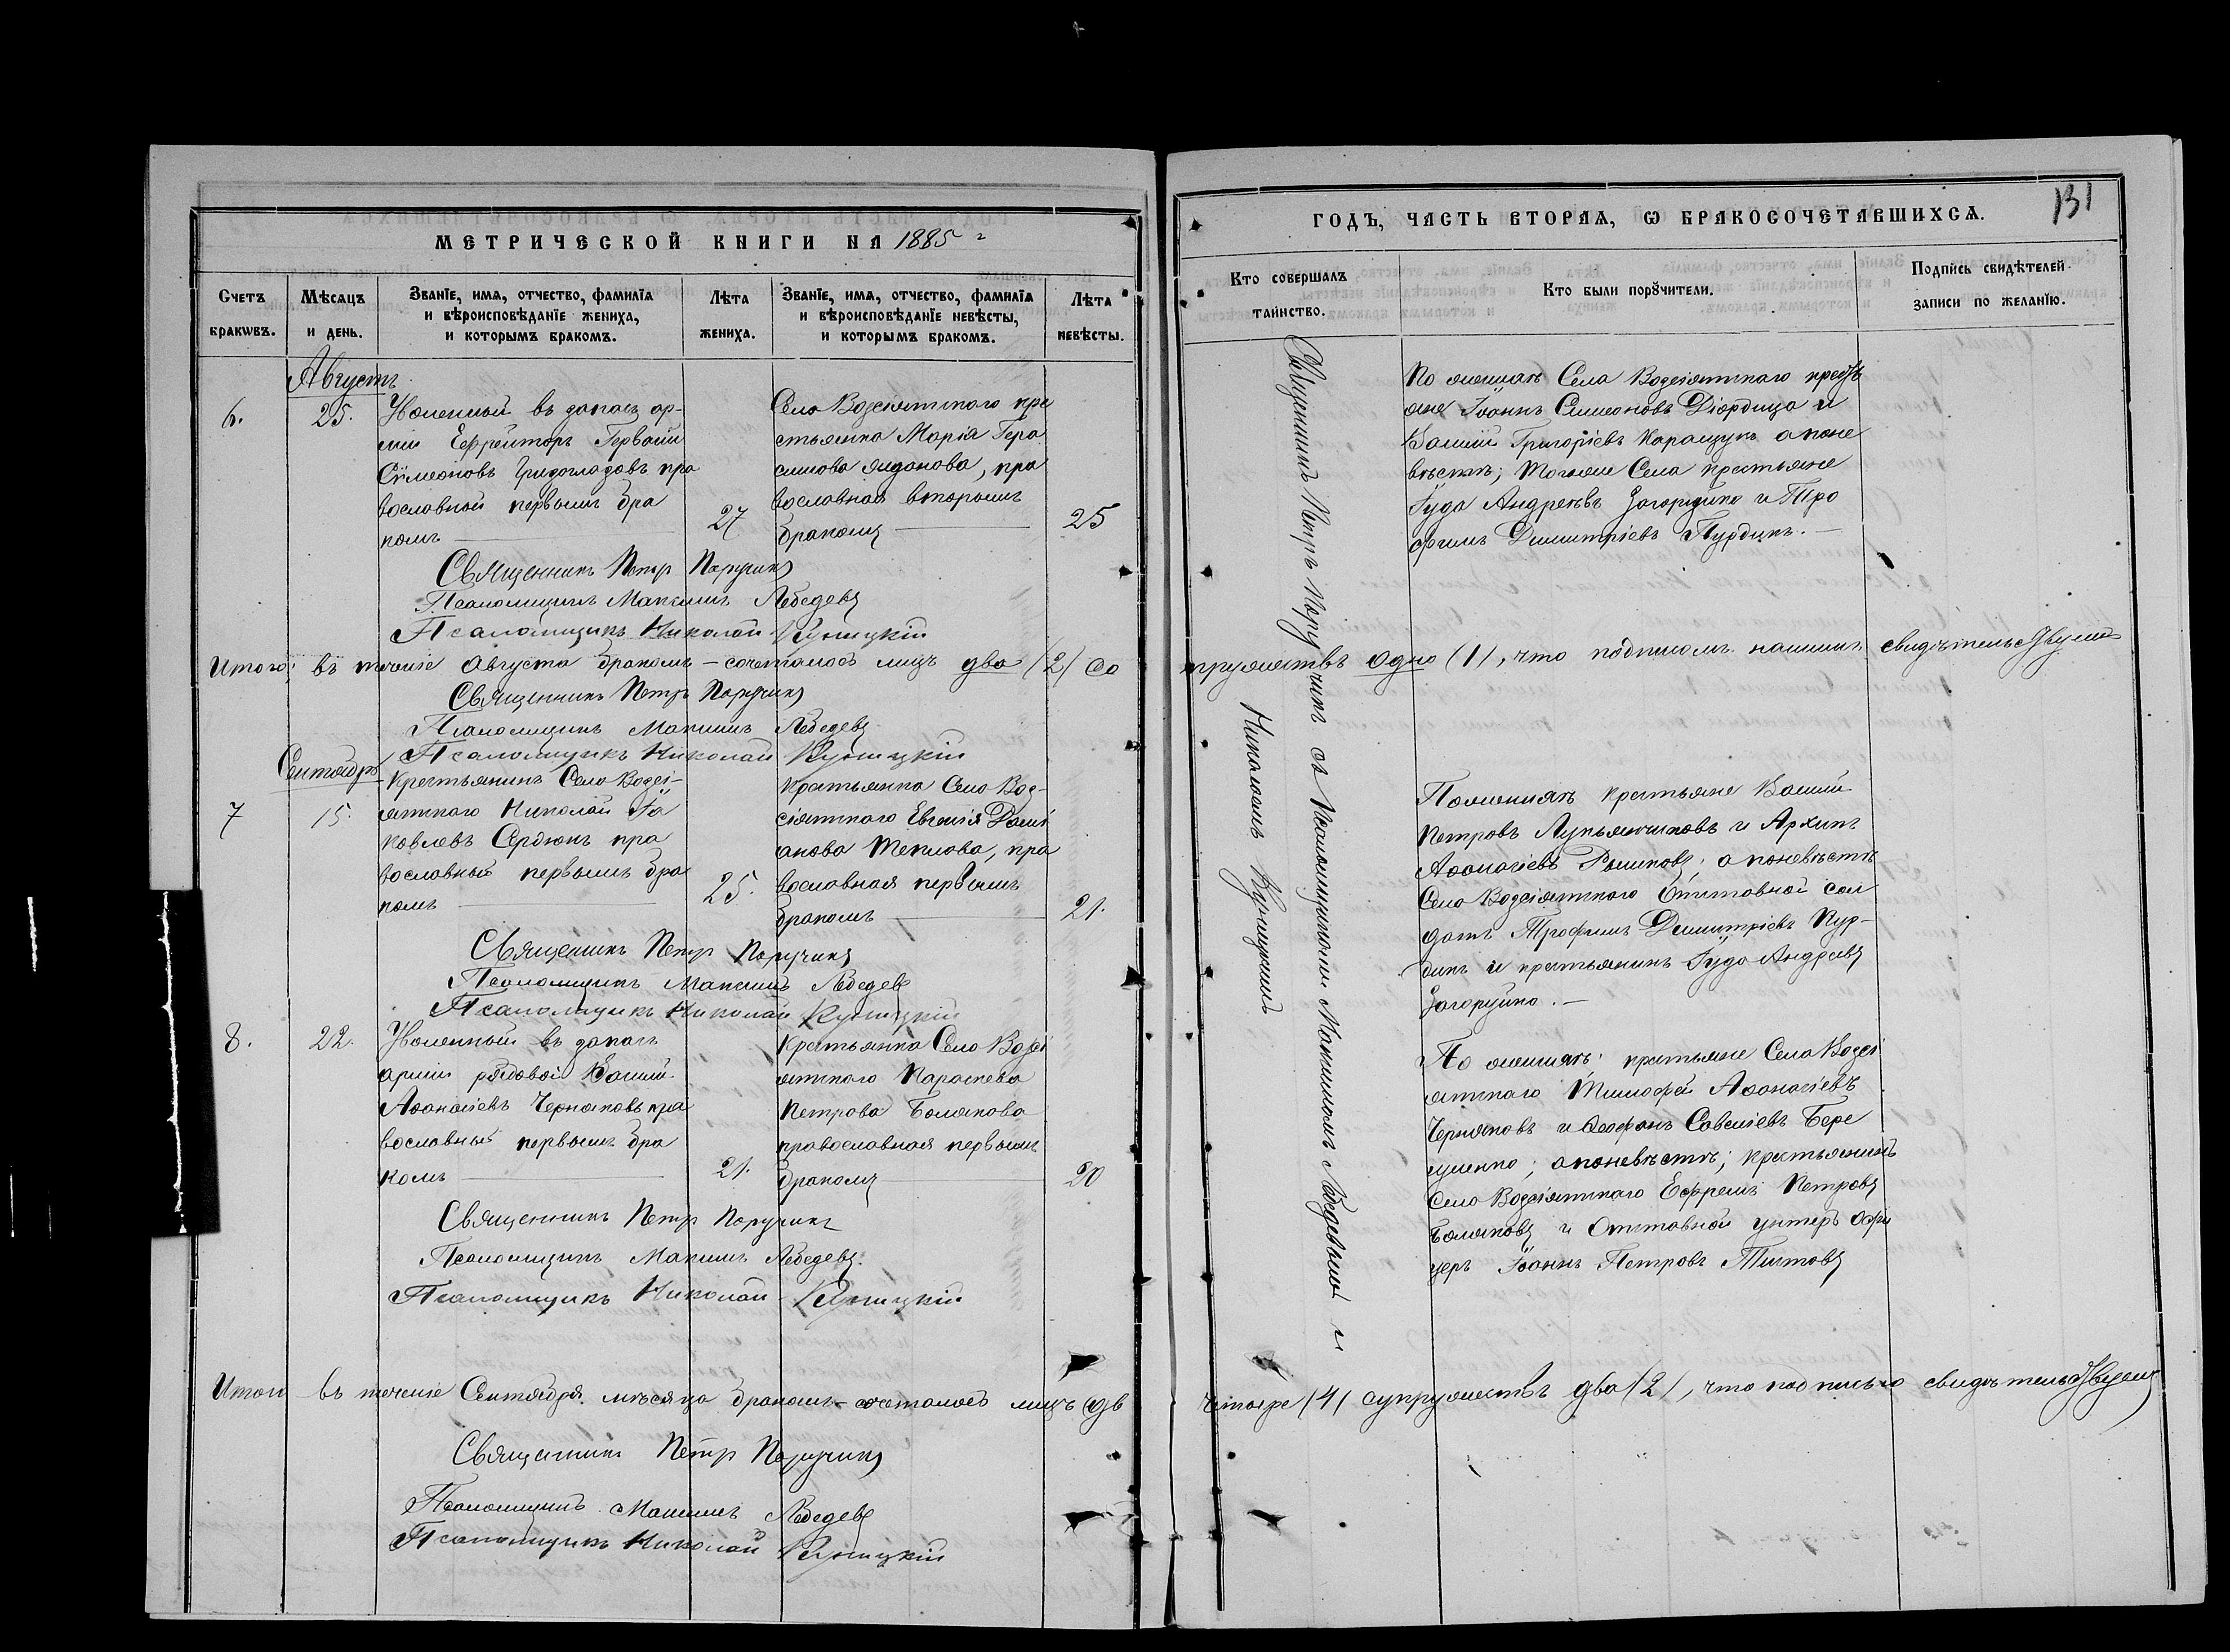 МЕТРИЧЕСКОЙ КНИГИ НА 1885 г
Счетъ браковъ.
Мѣсяцъ и день.
Званїе, имя, отчество, фамилїя
и вѣроисповѣданїе жениха,
и которымъ бракомъ.
Лѣта жениха.
Званїе, имя, отчество, фамилїя
и вѣроисповѣданїе невѣсты,
и которымъ бракомъ.
Лѣта невѣсты.
Августъ
6.
25.
Уволенный въ запасъ ар-
міи Ефрейторъ Гервасій
Сѵмеоновъ пра
вославный первымъ бра
комъ
27
Села Возсіятскаго кре
стьянка Марія Гера
симова, пра
вославная вторымъ
бракомъ
25
Священникъ Петръ Поручикъ
Псаломщикъ Максимъ Лебедевъ
Псаломщикъ Николай Куницкій
Итого въ теченіе Августа бракомъ – сочеталось лицъ два (2) со
Священникъ Петръ Поручикъ
Псаломщикъ Максимъ Лебедевъ
Псаломщикъ Николай Куницкій
Сентябрь
7
15.
Крестьянинъ Села Возсі-
ятскаго Николай Іа
ковлевъ Сердюкъ пра
вославный первымъ бра
комъ
25.
Крестьянка Села Воз-
сіятскаго Евгенія Даміа
анова Теплова, пра
вославная первымъ
бракомъ
21.
Священникъ Петръ Поручикъ
Псаломщикъ Максимъ Лебедевъ
Псаломщикъ Николай Куницкій
8.
22.
Уволенный въ запасъ
арміи рядовой Василій
Аѳанасіевъ Черняковъ пра
вославный первымъ бра
комъ
21.
Крестьянка Села Возсі
ятскаго Параскева
Петрова Болякова
православная первымъ
бракомъ
20
Священникъ Петръ Поручикъ
Псаломщикъ Максимъ Лебедевъ.
Псаломщикъ Николай Куницкій
Итого въ теченіе Сентября мѣсяца бракомъ – сочеталось лицъ
Священникъ Петръ Поручикъ
Псаломщикъ Максимъ Лебедевъ
Псаломщикъ Николай Куницкій
ГОДЪ, ЧАСТЬ ВТОРАЯ, Ѡ БРАКОСОЧЕТАВШИХСЯ.
131
Кто совершалъ таинство.
Кто были порꙋчители.
Подпись свидѣтелей записи по желанїю.
Священникъ Петръ Поручикъ съ Псаломщиками Максимомъ Лебедевымъ и
Николаемъ Куницкимъ
По женихѣ Села Возсіятскаго крестья
яне Іоаннъ Симеоновъ Діордица и
Василій Григоріевъ Каращукъ а по не
вѣстѣ; Тогоже Села крестьяне
Іуда Андреевъ Загоруйко и Тро
фимъ Димитріевъ Курдикъ. –
пружествъ одно (1), что подписомъ нашимъ свидѣтельствуемъ
По женихѣ крестьяне Василій
Петровъ Лукьянчиковъ и Архипъ
Аѳанасіевъ; а по невѣстѣ
Села Возсіятскаго Отставной сол
датъ Трофимъ Димитріевъ Кур-
дикъ и крестьянинъ Іуда Андреевъ
Загоруйко. –
По женихѣ: крестьяне Села Возсі
ятскаго Тимофей Аѳанасіевъ
Черняковъ и Савеліевъ Бере
щенко; а по невѣстѣ; крестьянинъ
Села Возсіятскаго Ефремъ Петровъ
Боляковъ и Отставной унтеръ офи
церъ Іоаннъ Петровъ Титовъ
четыре (4) супружествъ два (2), что подписью свидѣтельствуемъ